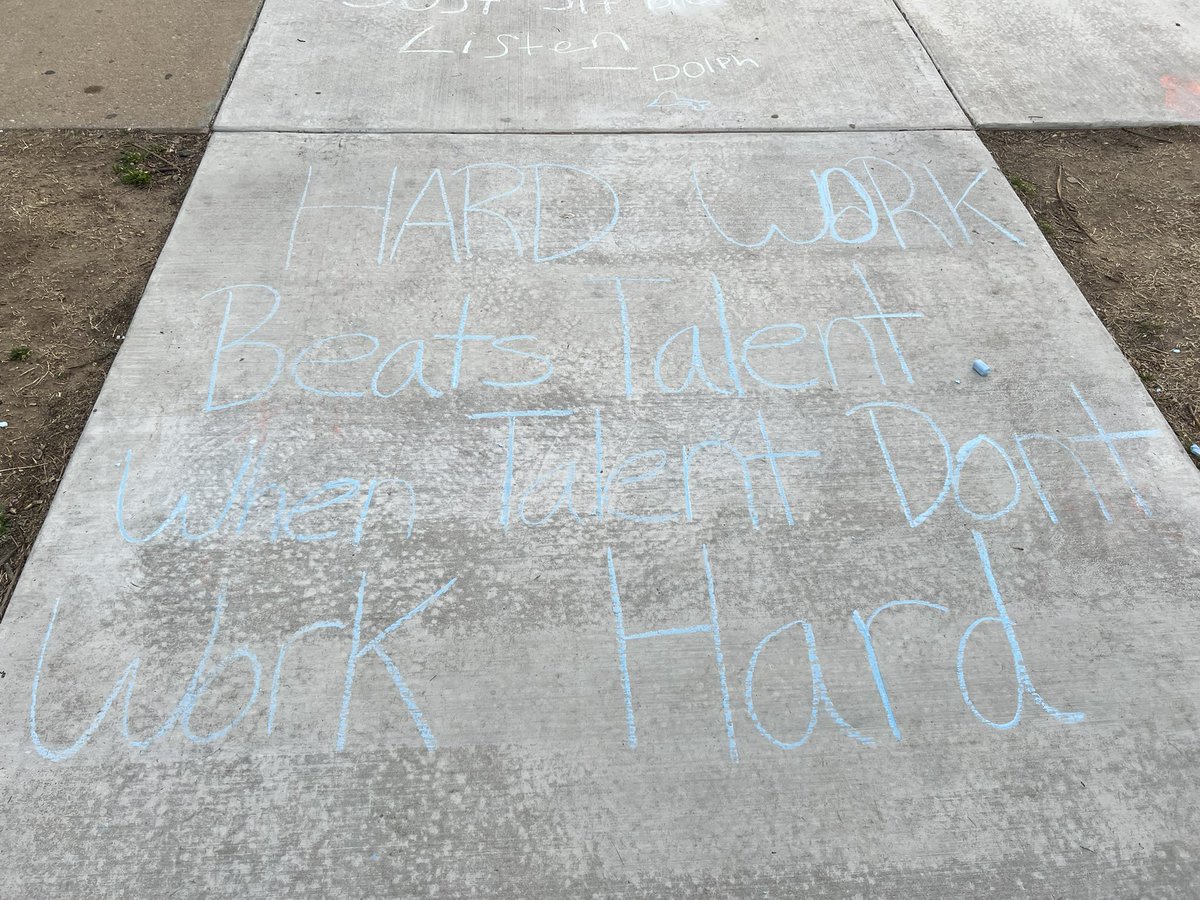 Just sit
Listen
— Dolph
HARD WORK
Beats Talent
When Talent Dont
Work Hard